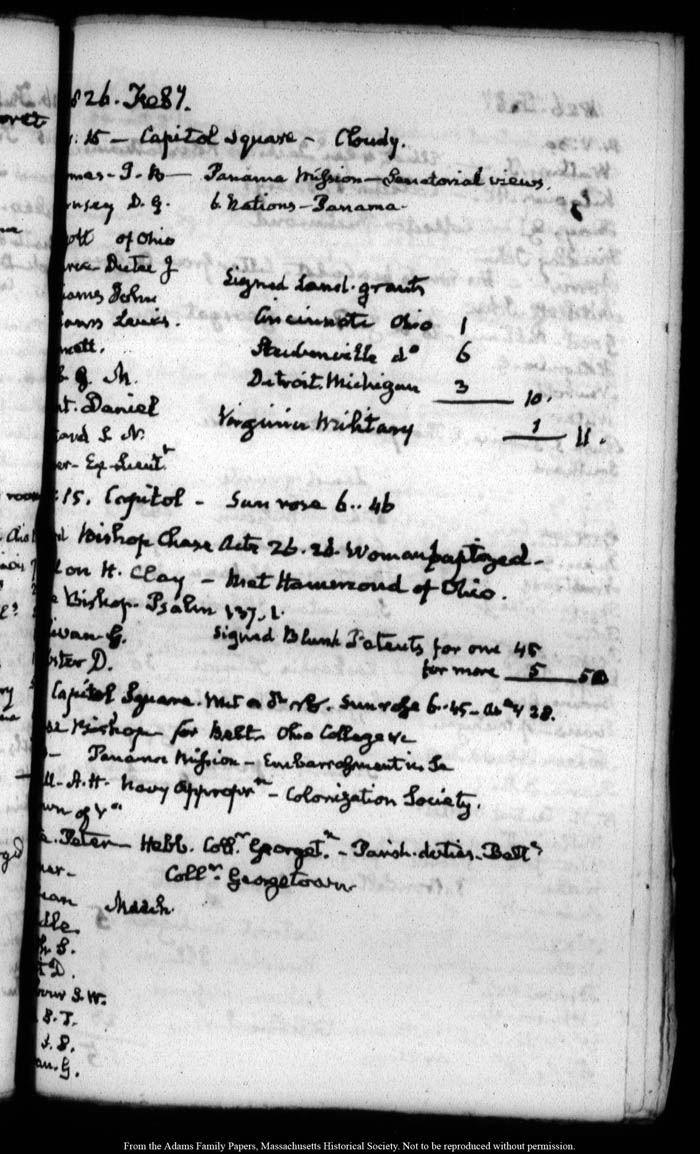 826. Feby.
15 — Capitol Square — Cloudy.
mas - J. B — Panama Mission — Senatorial views.
msey D. G. 6. Nations — Panama.
ott of Ohio
nce Dutee J
Signed Land-grants
iams John
Cincinnati Ohio 1
Lewis.
Steubenville do 6
nett.
Detroit. Michigan 3 10.
M.
t. Daniel
Virginia Military 1 11.
ard S. N.
er - Ex-Lieutt
15. Capitol - Sun rose 6..46
Bishop Chase Acts 26. 28. Woman baptized -
on H. Clay - Met Hammond of Ohio.
Bishop. Psalm 137. 1.
Signed Blank Patents for one 45
van G.
ster D.
for more 5 50
Capitol Square. Met a Sun rose 6..45 28.
Bishop for Balt. Ohio College &c
Panama Mission - Embarrassment in Se
ll. A. H. Navy Approprn - Colonization Society.
wn of Va
Peter — Hebb. Collr Georget.n - Parish. duties. Balt
Collr Georgetown
er -
March
an
dle
h. S.
t D.
ow S. W.
S. T.
an. G.
From the Adams Family Papers, Massachusetts Historical Society. Not to be reproduced without permission.